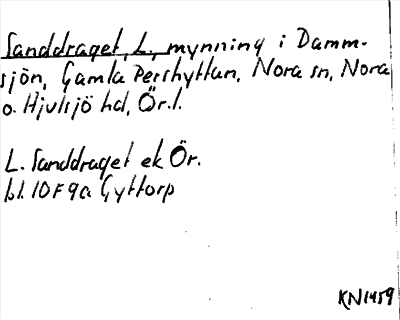 Sanddraget, L., mynning i Damm-
sjön, Gamla Pershyttan, Nora sn, Nora
o. Hjulsjö hd, Ör.l.
L. Sanddraget ek Ör.
bl. 10F9a Gyttorp
KN1959